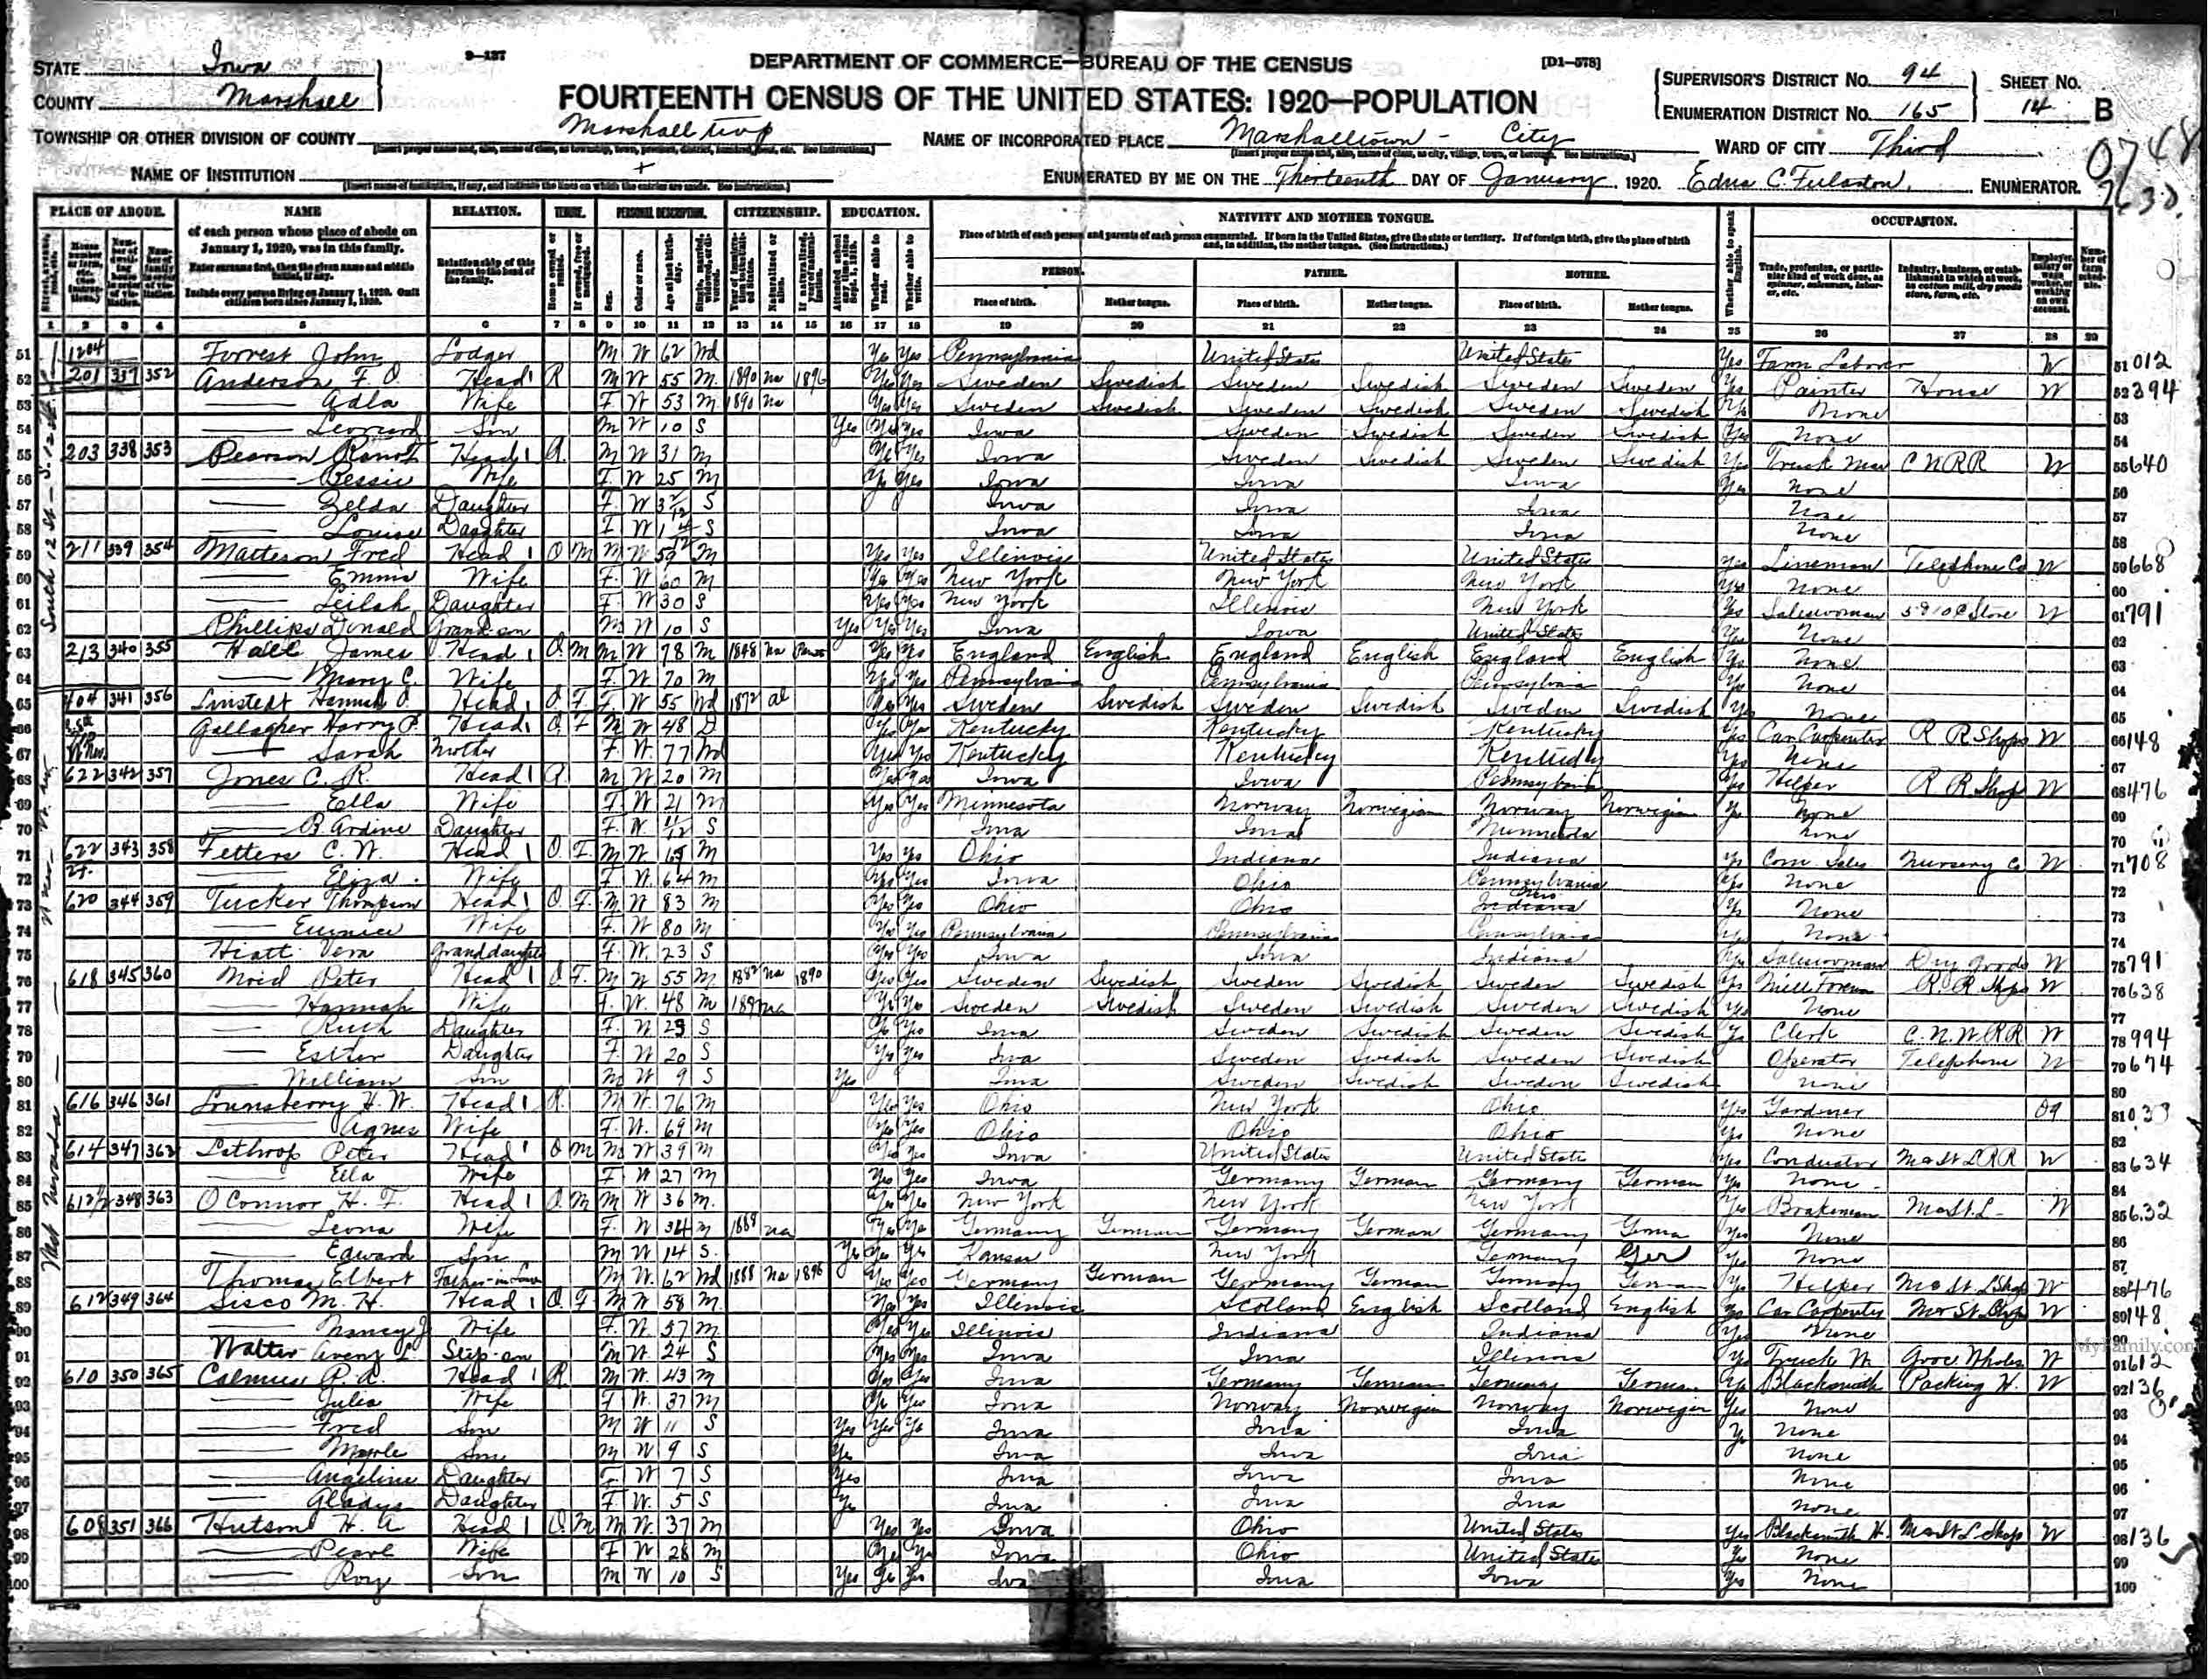 9-137
DEPARTMENT OF COMMERCE—BUREAU OF THE CENSUS
[D1-578]
STATE Iowa
COUNTY Marshall
FOURTEENTH CENSUS OF THE UNITED STATES: 1920—POPULATION
SUPERVISOR'S DISTRICT No. 94
ENUMERATION DISTRICT No. 165
SHEET No. 14 B
TOWNSHIP OR OTHER DIVISION OF COUNTY Marshall twp
NAME OF INCORPORATED PLACE Marshalltown - City
WARD OF CITY Third
0748
NAME OF INSTITUTION
ENUMERATED BY ME ON THE Thirteenth DAY OF January, 1920. Edna C. ENUMERATOR.
PLACE OF ABODE. NAME RELATION. TENURE. PERSONAL DESCRIPTION. CITIZENSHIP. EDUCATION. NATIVITY AND MOTHER TONGUE. OCCUPATION.
of each person whose place of abode on January 1, 1920, was in this family.
Enter surname first, then the given name and middle initial, if any.
Include every person living on January 1, 1920. Omit children born since January 1, 1920.
Relationship of this person to the head of the family.
Place of birth of each person and parents of each person enumerated. If born in the United States, give the state or territory. If of foreign birth, give the place of birth and, in addition, the mother tongue. (See Instructions.)
PERSON. FATHER. MOTHER.
Place of birth. Mother tongue. Place of birth. Mother tongue. Place of birth. Mother tongue.
Whether able to speak English.
1 2 3 4 5 6 7 8 9 10 11 12 13 14 15 16 17 18 19 20 21 22 23 24 25 26 27 28 29
51 1204 Forrest John Lodger M W 62 Wd Yes Yes Pennsylvania United States United States Yes Farm Laborer W 51 012
52 201 337 352 Anderson F. O. Head 1 R M W 55 M 1890 Na 1896 Yes Yes Sweden Swedish Sweden Swedish Sweden Sweden Yes Painter House W 52 394
53 Adla Wife F W 53 M 1890 Na Yes Yes Sweden Swedish Sweden Swedish Sweden Swedish Yes None 53
54 Leonard Son M W 10 S Yes Yes Yes Iowa Sweden Swedish Sweden Swedish Yes None 54
55 203 338 353 Pearson Head 1 R M W 31 M Yes Yes Iowa Sweden Swedish Sweden Swedish Yes Truck Man C N R R W 55 640
56 Bessie Wife F W 25 M Yes Yes Iowa Iowa Iowa Yes None 56
57 Zelda Daughter F W S Iowa Iowa Iowa None 57
58 Louise Daughter F W S Iowa Iowa Iowa None 58
59 211 339 354 Matteson Fred Head 1 O M M W 59 M Yes Yes Illinois United States United States Yes Lineman Telephone Co W 59 668
60 Emma Wife F W 60 M Yes Yes New York New York New York Yes None 60
61 Leilah Daughter F W 30 S Yes Yes New York Illinois New York Yes Saleswoman 5 & 10 c Store W 61 791
62 Phillips Donald Grandson M W 10 S Yes Yes Yes Iowa Iowa United States Yes None 62
63 213 340 355 Hall James Head 1 O M M W 78 M 1848 Na Yes Yes England English England English England English Yes None 63
64 Mary C. Wife F W 70 M Yes Yes Pennsylvania Pennsylvania Pennsylvania Yes None 64
65 404 341 356 Linstedt Hannah O. Head 1 O F F W 55 Wd 1872 al Yes Yes Sweden Swedish Sweden Swedish Sweden Swedish Yes None 65
66 Gallagher Harry P. Head 1 O F M W 48 D Yes Yes Kentucky Kentucky Kentucky Yes Car Carpenter R R Shops W 66 148
67 Sarah Mother F W 77 Wd Yes Yes Kentucky Kentucky Kentucky Yes None 67
68 622 342 357 Jones C. R. Head 1 R M W 20 M Yes Yes Iowa Iowa Pennsylvania Yes Helper R R Shop W 68 476
69 Ella Wife F W 21 M Yes Yes Minnesota Norway Norwegian Norway Norwegian Yes None 69
70 B. Ardine Daughter F W 11/12 S Iowa Iowa Minnesota None 70
71 622 343 358 Fetters C. W. Head 1 O F M W M Yes Yes Ohio Indiana Indiana Yes Com. Sales Nursery Co W 71 708
72 Eliza Wife F W 64 M Yes Yes Iowa Ohio Pennsylvania Yes None 72
73 620 344 359 Tucker Thompson Head 1 O F M W 83 M Yes Yes Ohio Ohio Ohio Yes None 73
74 Eunice Wife F W 80 M Yes Yes Pennsylvania Pennsylvania Pennsylvania Yes None 74
75 Hiatt Vera Granddaughter F W 23 S Yes Yes Iowa Iowa Indiana Yes Saleswoman Dry Goods W 75 791
76 618 345 360 Moid Peter Head 1 O F M W 55 M 1882 Na 1890 Yes Yes Sweden Swedish Sweden Swedish Sweden Swedish Yes Mill Foreman R. R. Shops W 76 638
77 Hannah Wife F W 48 M Na Yes Yes Sweden Swedish Sweden Swedish Sweden Swedish Yes None 77
78 Ruth Daughter F W 23 S Yes Yes Iowa Sweden Swedish Sweden Swedish Yes Clerk C. N. W. R R W 78 994
79 Esther Daughter F W 20 S Yes Yes Iowa Sweden Swedish Sweden Swedish Operator Telephone W 79 674
80 William Son M W 9 S Yes Iowa Sweden Swedish Sweden Swedish None 80
81 616 346 361 Lounsberry H. W. Head 1 R M W 76 M Yes Yes Ohio New York Ohio Yes Gardner 81 033
82 Agnes Wife F W 69 M Yes Yes Ohio Ohio Ohio Yes None 82
83 614 347 362 Lathrop Peter Head 1 O M M W 39 M Yes Yes Iowa United States United States Yes Conductor M & St L R R W 83 634
84 Ella Wife F W 27 M Yes Yes Iowa Germany German Germany German Yes None 84
85 612½ 348 363 O'Connor H. F. Head 1 O M M W 36 M Yes Yes New York New York New York Yes Brakeman M & St. L W 85 632
86 Leona Wife F W 34 M 1888 na Yes Yes Germany German Germany German Germany German Yes None 86
87 Edward Son M W 14 S Yes Yes Yes Kansas New York Germany Ger Yes None 87
88 Thomas Elbert Father-in-law M W 62 Wd 1888 Na 1896 Yes Yes Germany German Germany German Germany German Yes Helper M & St. L Shop W 88 476
89 612 349 364 Sisco M. H. Head 1 O F M W 58 M Yes Yes Illinois Scotland English Scotland English Yes Car Carpenter M & St. L Shop W 89 148
90 Nancy J Wife F W 57 M Yes Yes Illinois Indiana Indiana Yes None 90
91 Walter Avery L. Step-son M W 24 S Yes Yes Iowa Iowa Illinois Yes Truck M. Groc. Wholes W 91 612
92 610 350 365 R. A. Head 1 R M W 43 M Yes Yes Iowa Germany German Germany German Yes Blacksmith Packing H. W 92 136
93 Julia Wife F W 37 M Yes Yes Iowa Norway Norwegian Norway Norwegian Yes None 93
94 Fred Son M W 11 S Yes Yes Yes Iowa Iowa Iowa Yes None 94
95 Merle Son M W 9 S Yes Iowa Iowa Iowa None 95
96 Angeline Daughter F W 7 S Yes Iowa Iowa Iowa None 96
97 Gladys Daughter F W 5 S Yes Iowa Iowa Iowa None 97
98 608 351 366 Hutson H. A Head 1 O M M W 37 M Yes Yes Iowa Ohio United States Yes Blacksmith H. M & St L Shop W 98 136
99 Pearl Wife F W 28 M Yes Yes Iowa Ohio United States Yes None 99
100 Roy Son M W 10 S Yes Yes Yes Iowa Iowa Iowa Yes None 100
South 12 St
West Nevada
MyFamily.com